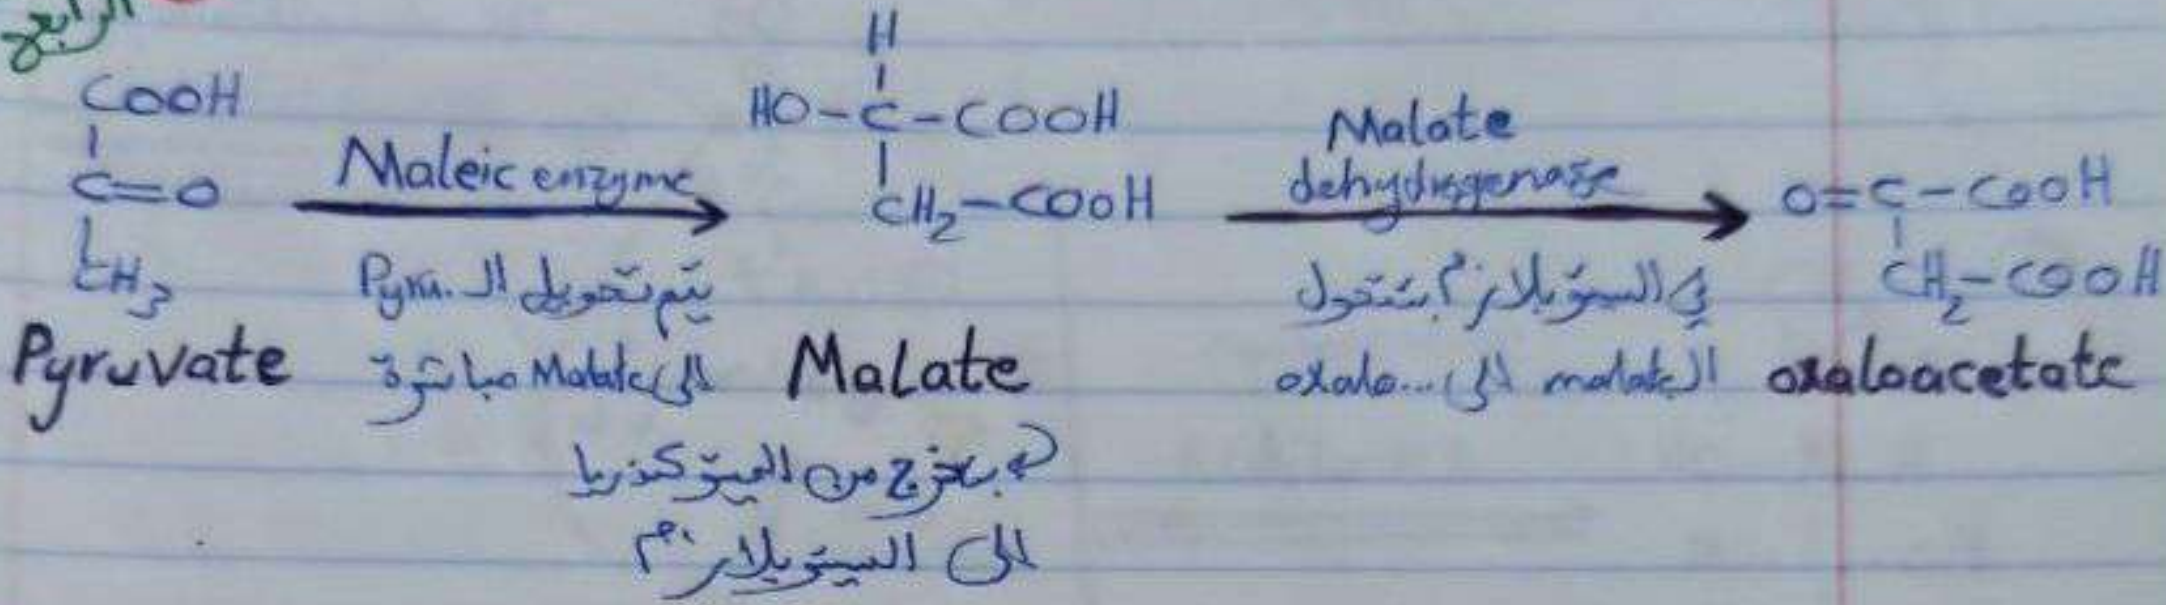 الرابع
COOH
C=O
CH3
Pyruvate
Maleic enzyme
يتم تحويل ال Pyru.
الى Malate مباشرة
H
HO-C-COOH
CH2-COOH
Malate
بيخرج من الميتوكندريا
الى السيتوبلازم
Malate
dehydrogenase
في السيتوبلازم بتتحول
ال malate الى oxalo...
O=C-COOH
CH2-COOH
oxaloacetate